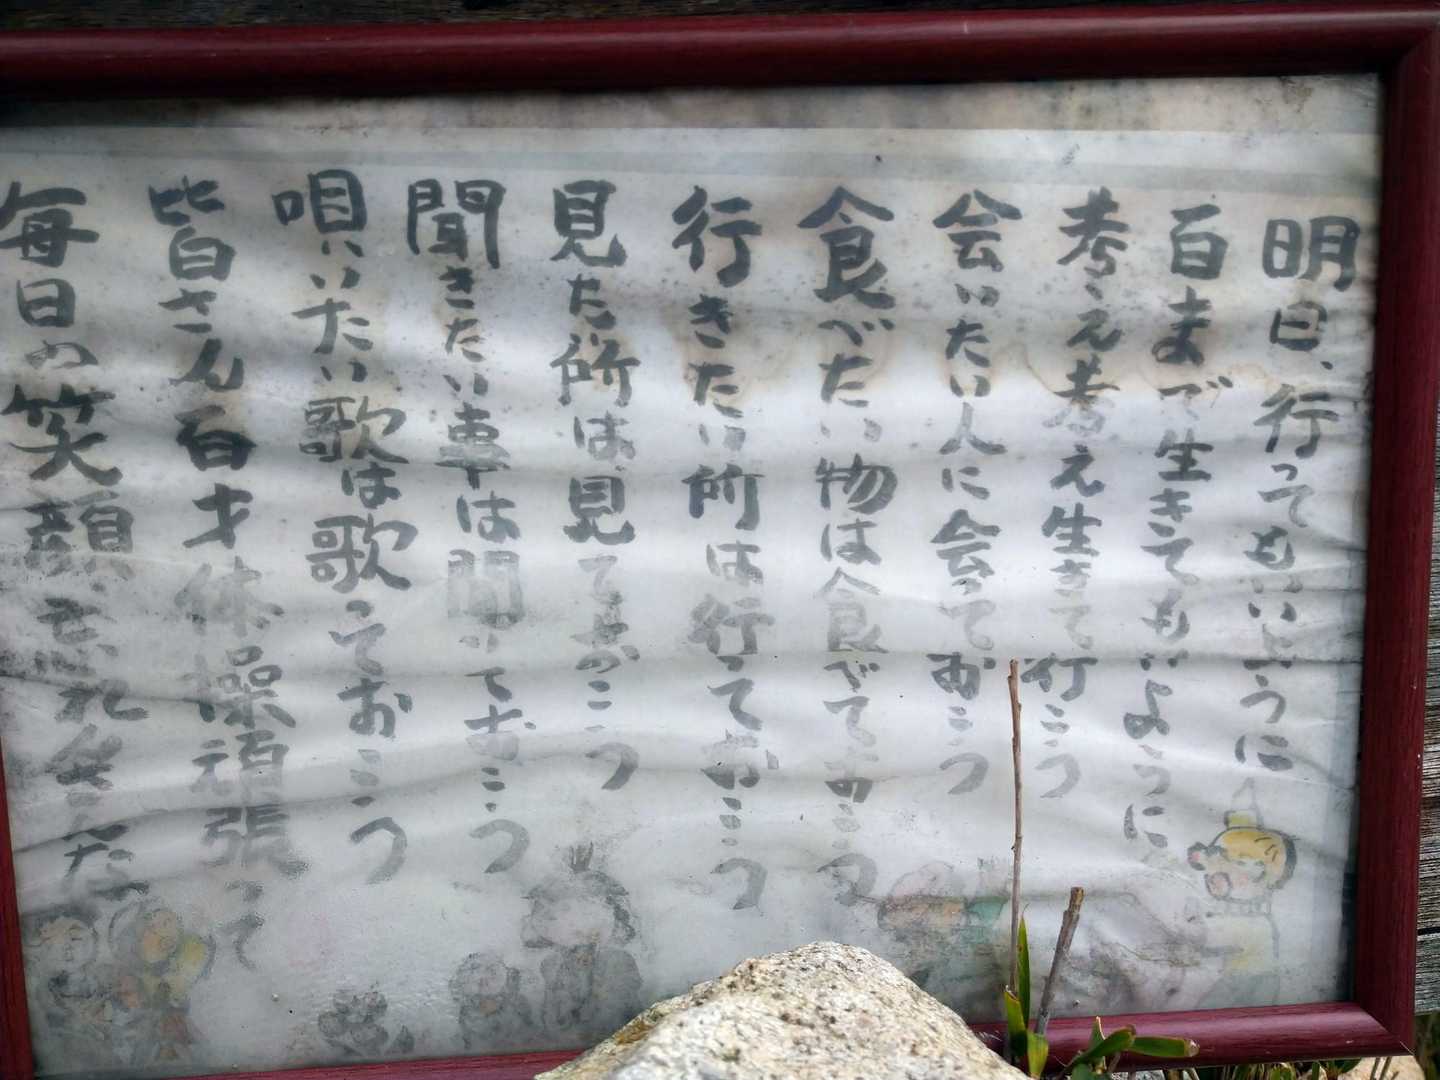 明日、行ってもいいように
百まで生きてもいいように
考え考え生きて行こう
会いたい人に会っておこう
食べたい物は食べておこう
行きたい所は行っておこう
見た所は見ておこう
聞きたい事は聞いておこう
唄いたい歌は歌っておこう
皆さん百才体操頑張って
毎日の笑顔忘れ